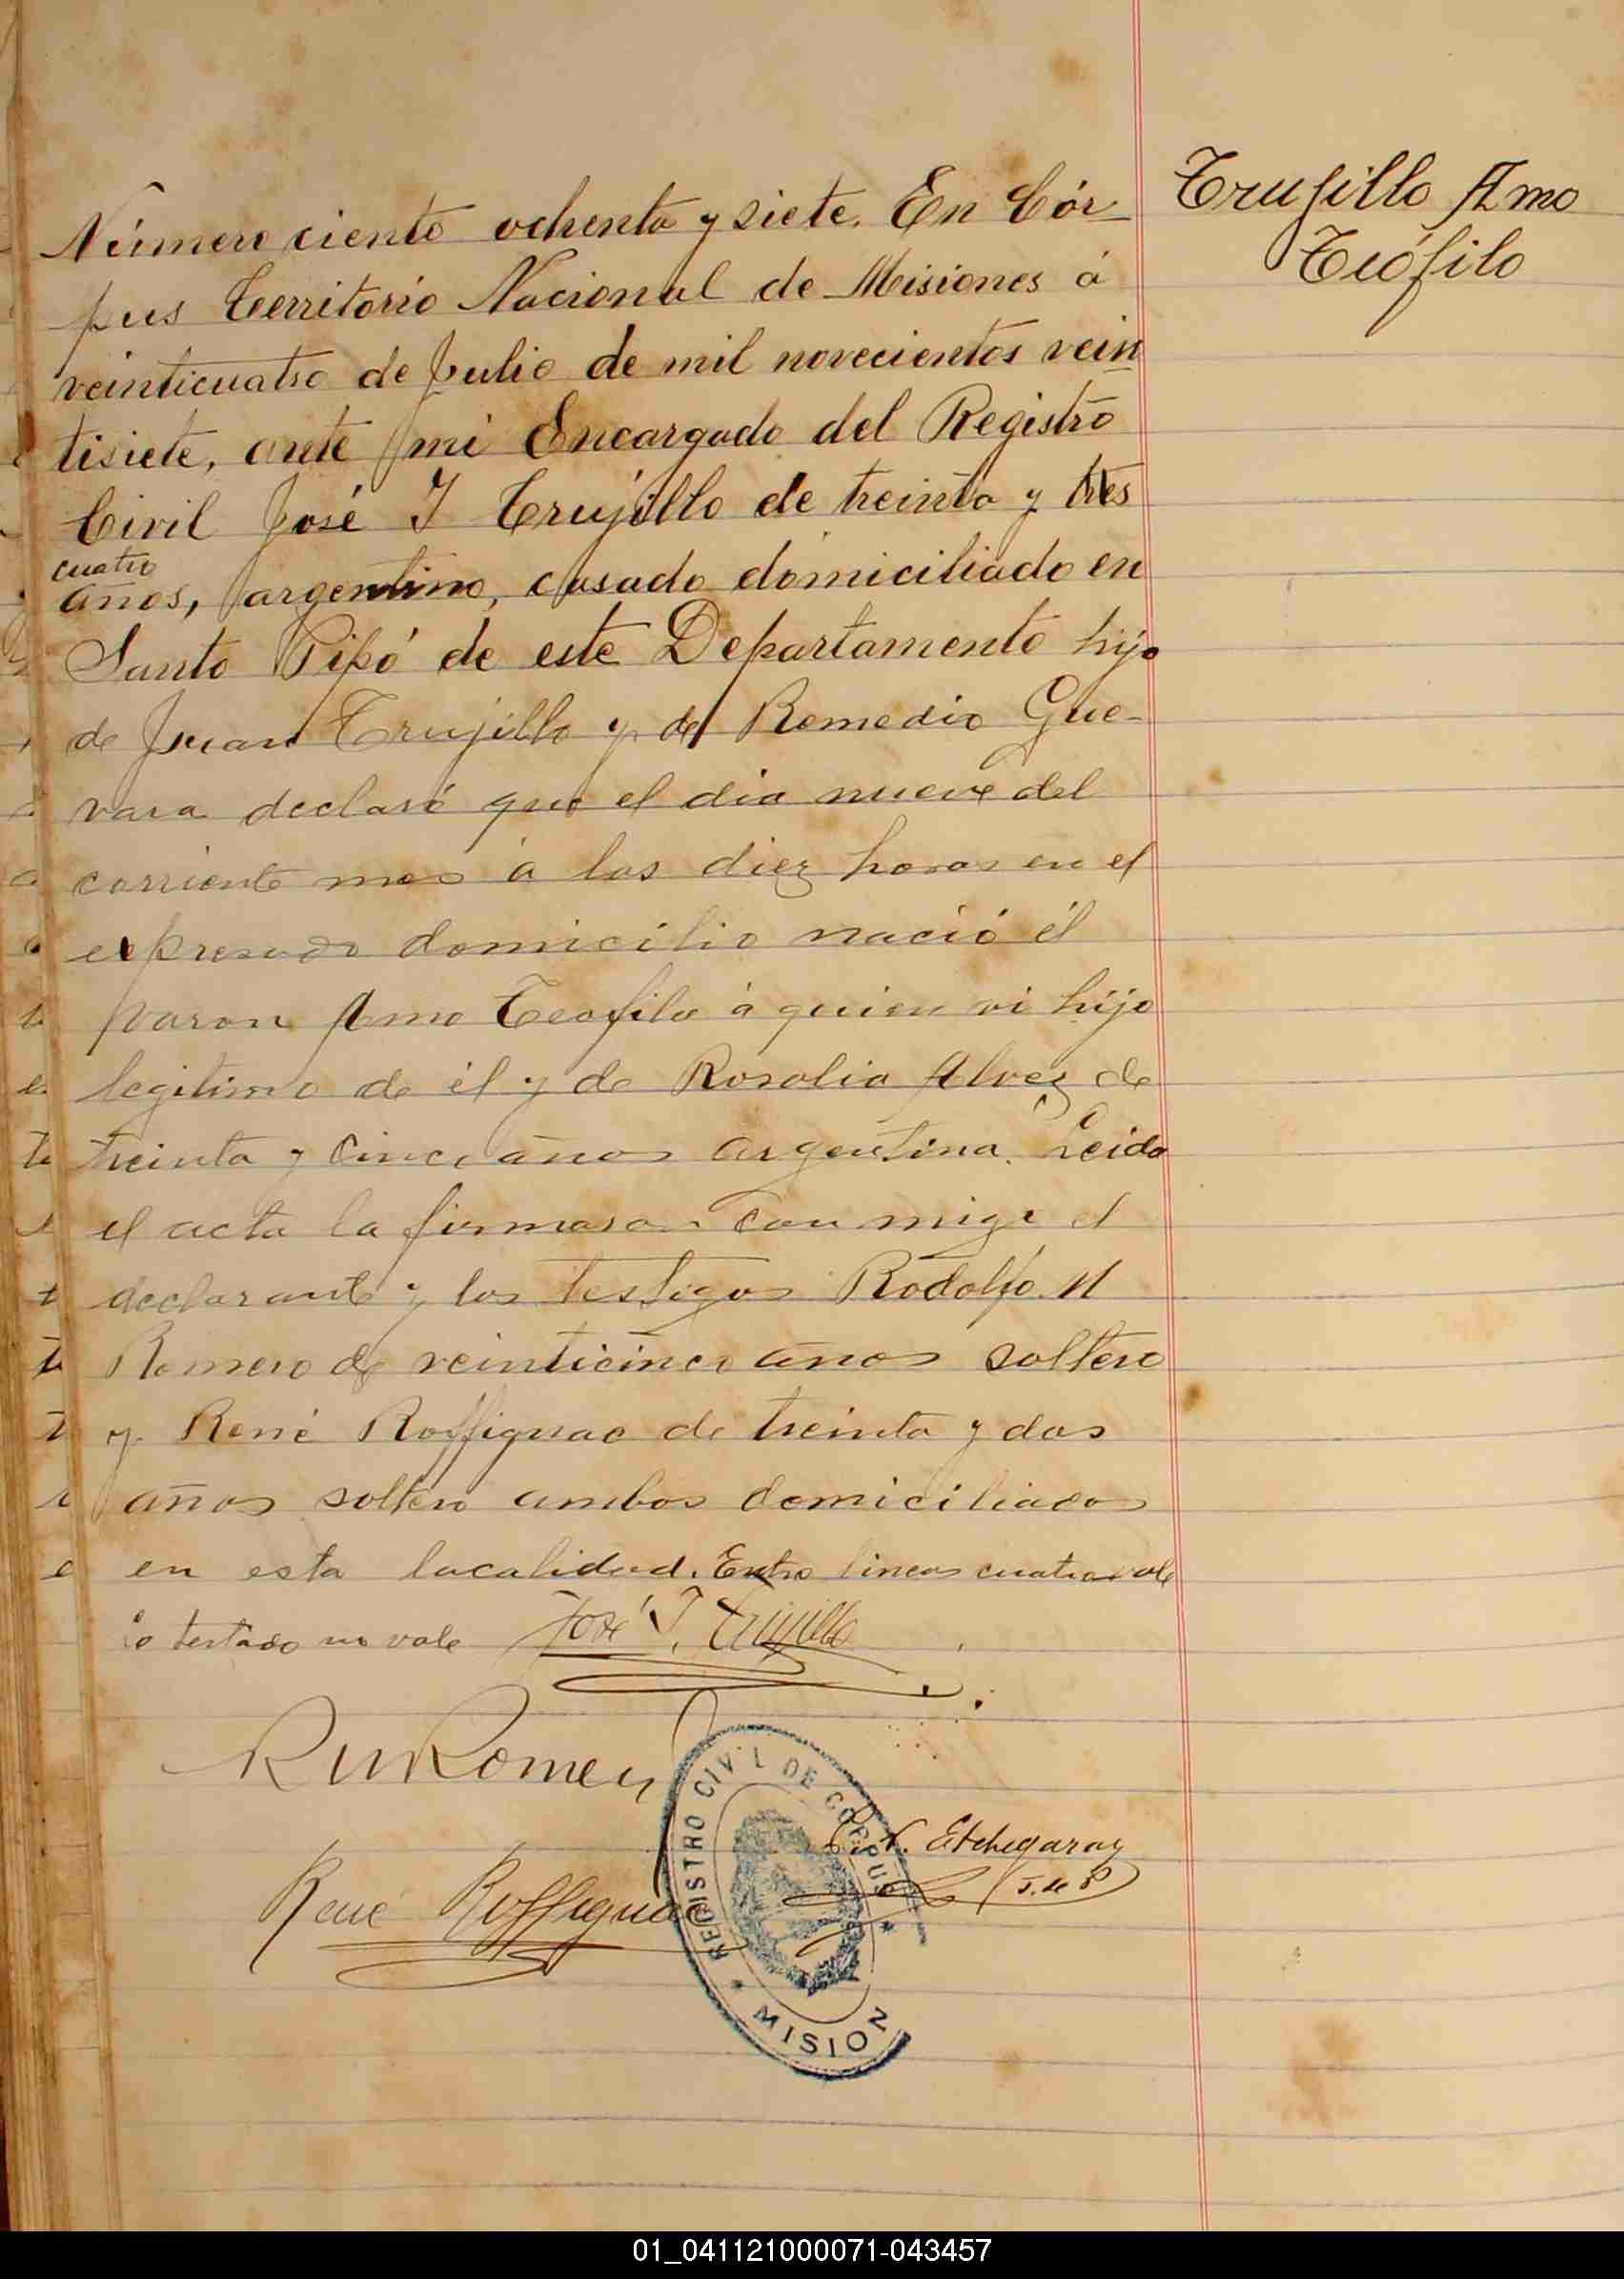 Trujillo Amo
Teófilo
Número ciento ochenta y siete. En Cór
pus Territorio Nacional de Misiones á
veinticuatro de Julio de mil novecientos vein
tisiete, ante mi Encargado del Registro
Civil José I Trujillo de treinta y tres
cuatro
años, argentino, casado domiciliado en
Santo Pipó de este Departamento hijo
de Juan Trujillo y de Remedio Gue-
vara declaró que el dia nueve del
corriente mes á las diez horas en el
expresado domicilio nació él
varon Amo Teofilo á quien vi hijo
legitimo de él y de Rosalia Alvez de
treinta y cinco años argentina. Leida
el acta la firmaron conmigo el
declarante y los testigos Rodolfo N
Romero de veinticinco años soltero
y René Roffignac de treinta y dos
años soltero ambos domiciliados
en esta localidad. Entre lineas cuatro vale
lo testado no vale José I. Trujillo
R N Romero
N. Etchegaray
J. de P
René Roffignac
REGISTRO CIVIL DE CORPUS
MISION
01_041121000071-043457